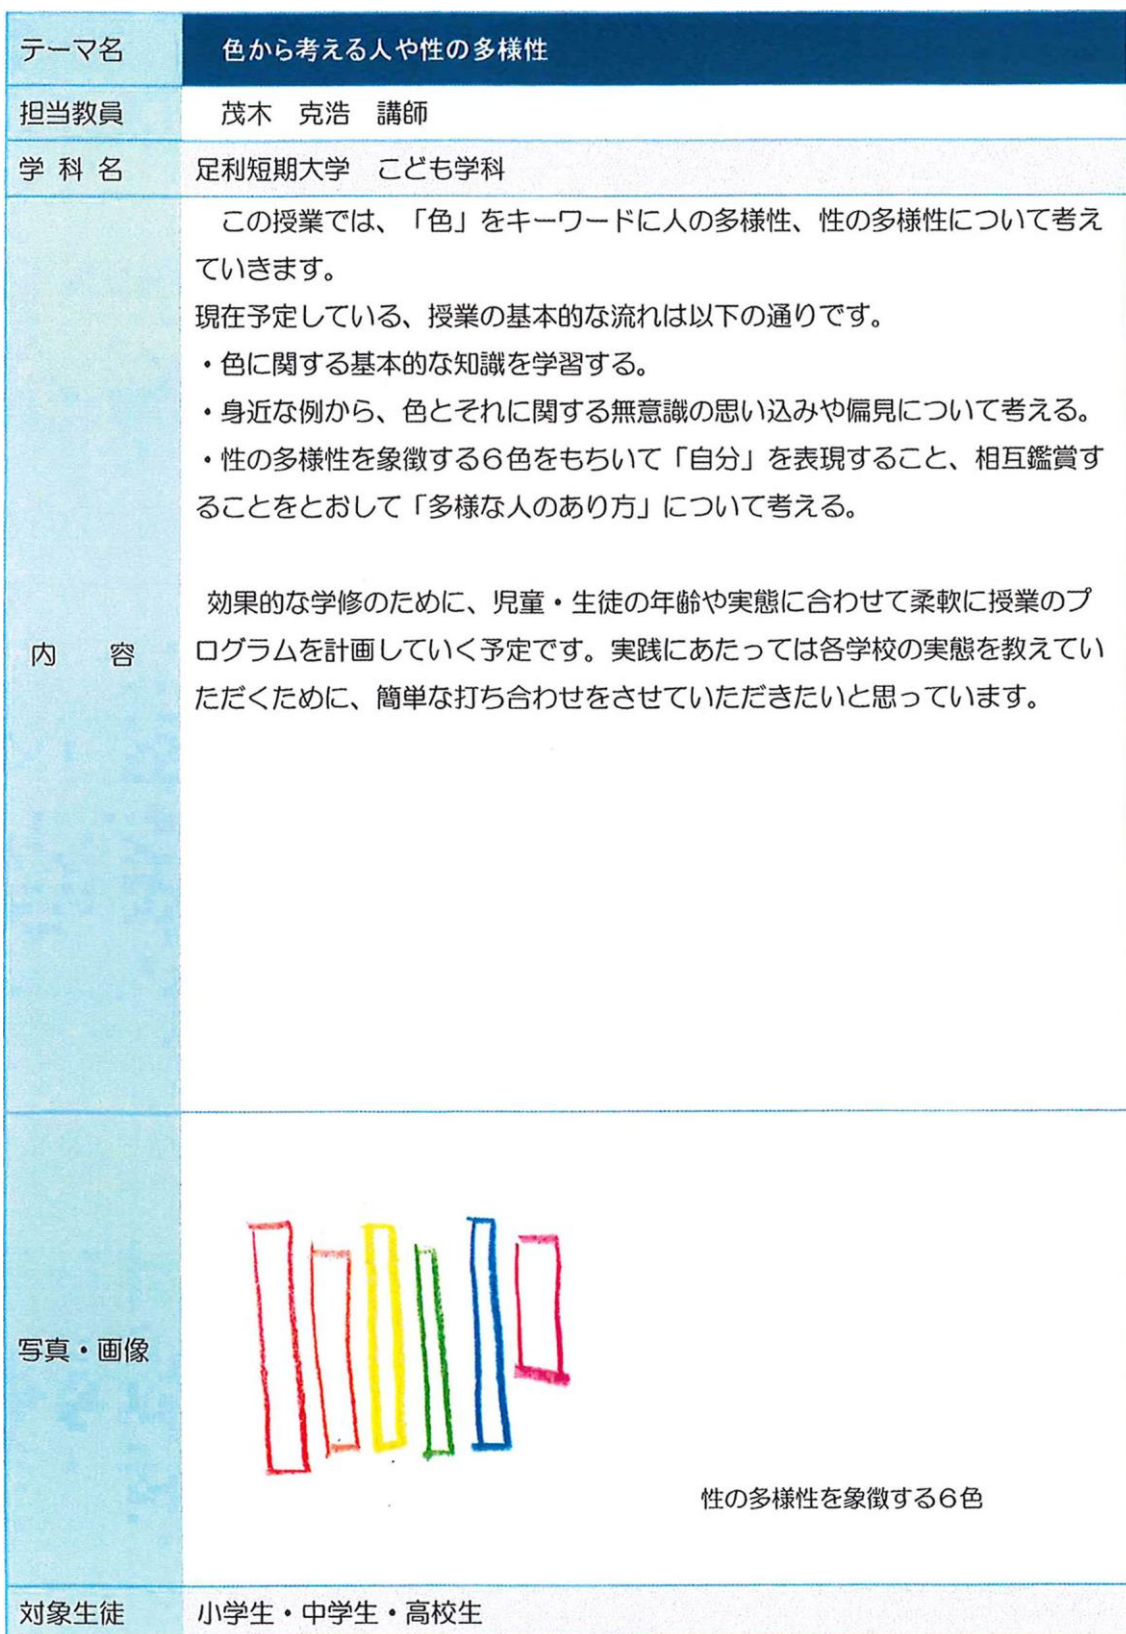 テーマ名 色から考える人や性の多様性
担当教員 茂木 克浩 講師
学科名 足利短期大学 こども学科
この授業では、「色」をキーワードに人の多様性、性の多様性について考え
ていきます。
現在予定している、授業の基本的な流れは以下の通りです。
・色に関する基本的な知識を学習する。
・身近な例から、色とそれに関する無意識の思い込みや偏見について考える。
・性の多様性を象徴する6色をもちいて「自分」を表現すること、相互鑑賞す
ることをとおして「多様な人のあり方」について考える。
効果的な学修のために、児童・生徒の年齢や実態に合わせて柔軟に授業のプ
内容 ログラムを計画していく予定です。実践にあたっては各学校の実態を教えてい
ただくために、簡単な打ち合わせをさせていただきたいと思っています。
写真・画像
性の多様性を象徴する6色
対象生徒 小学生・中学生・高校生